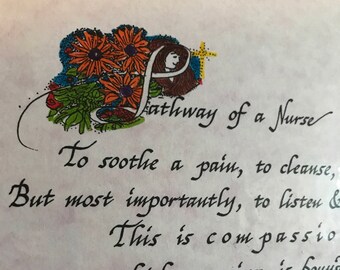 Pathway of a Nurse
To soothe a pain, to cleanse,
But most importantly, to listen &
This is compassio